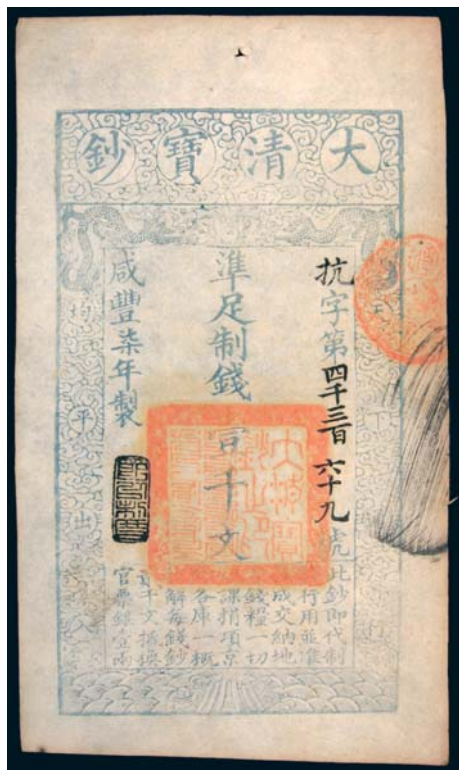 大清寶鈔
抗字第四千三百六十九號
準足制錢
千文
咸豐柒年製
下
行
均平出入
此鈔即代制
行用並准
成交納地
錢糧一切
課捐項京
各庫一概
解每錢鈔
千文抵換
官票銀壹兩